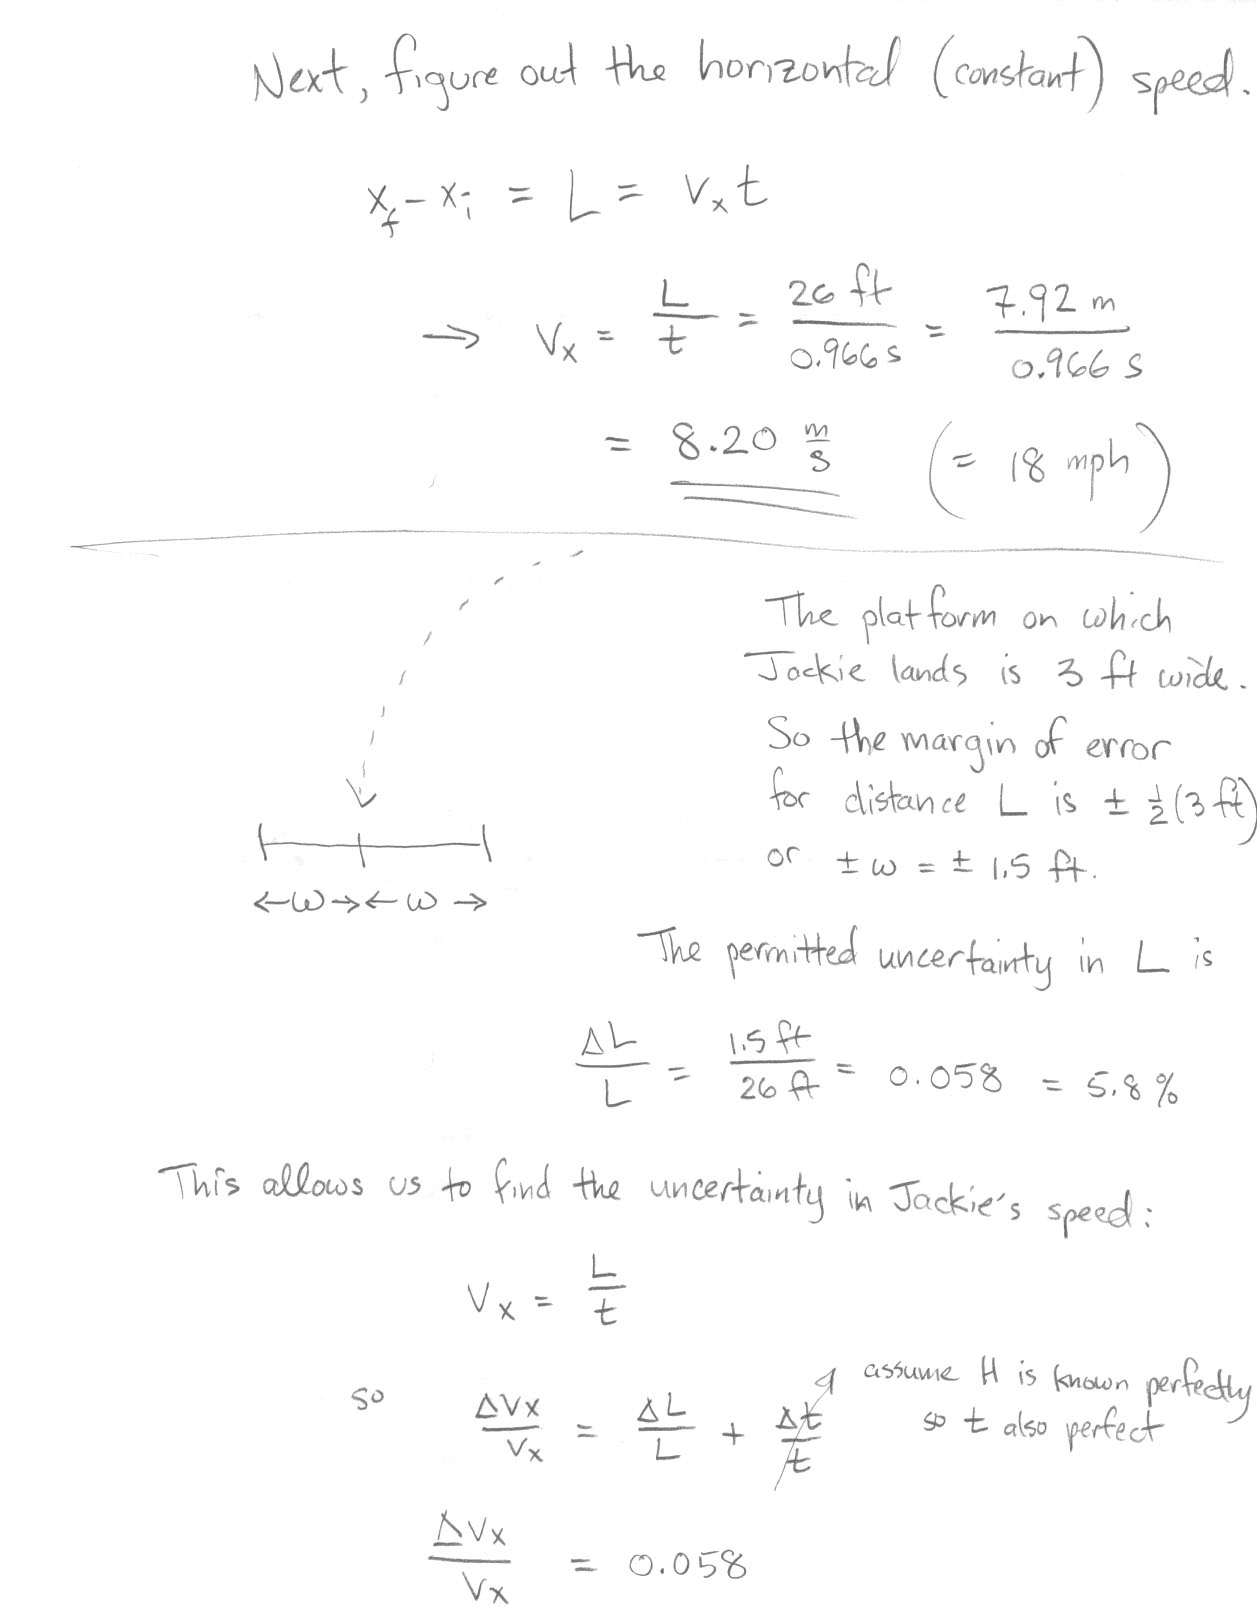 Next, figure out the horizontal (constant) speed.
x_f - x_i = L = v_x t
→ v_x = L/t = 26 ft / 0.966 s = 7.92 m / 0.966 s
= 8.20 m/s (= 18 mph)
The platform on which
Jackie lands is 3 ft wide.
So the margin of error
for distance L is ± ½(3 ft)
or ± w = ± 1.5 ft.
←w→←w→
The permitted uncertainty in L is
ΔL/L = 1.5 ft / 26 ft = 0.058 = 5.8 %
This allows us to find the uncertainty in Jackie's speed:
v_x = L/t
assume H is known perfectly
so t also perfect
so Δv_x/v_x = ΔL/L + Δt/t
Δv_x/v_x = 0.058